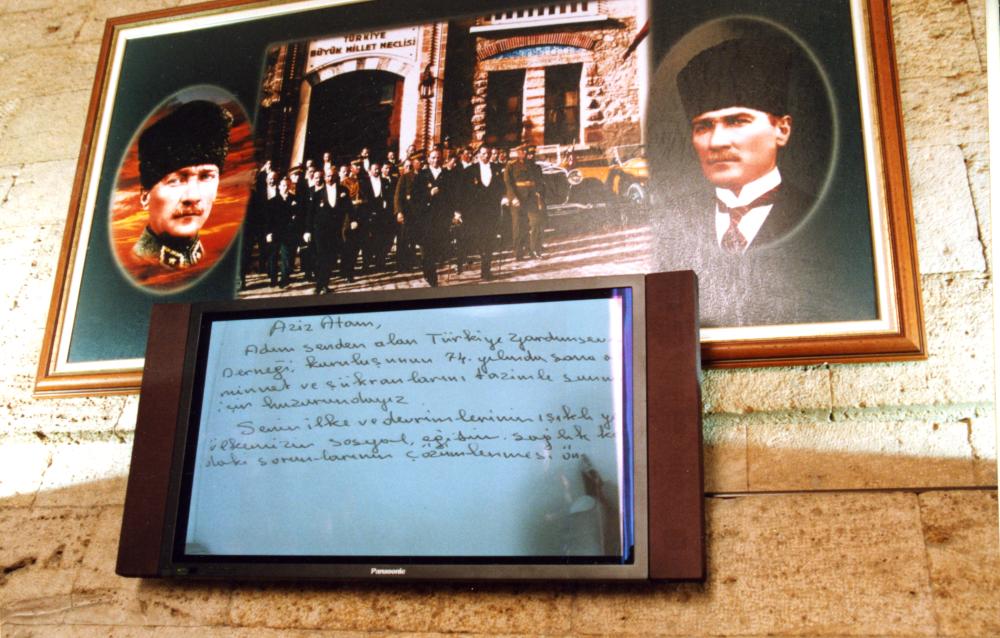 TÜRKİYE
BÜYÜK MİLLET MECLİSİ
Aziz Atam,
Adını senden alan Türkiye Yardımsev
Derneği kuruluşunun 74. yılında sana
minnet ve şükranlarını tazimle sunm
için huzurundayız
Senin ilke ve devrimlerinin ışıklı y
ülkemizin sosyal, eğitim, sağlık k
daki sorunlarının çözümlenmesi
Panasonic